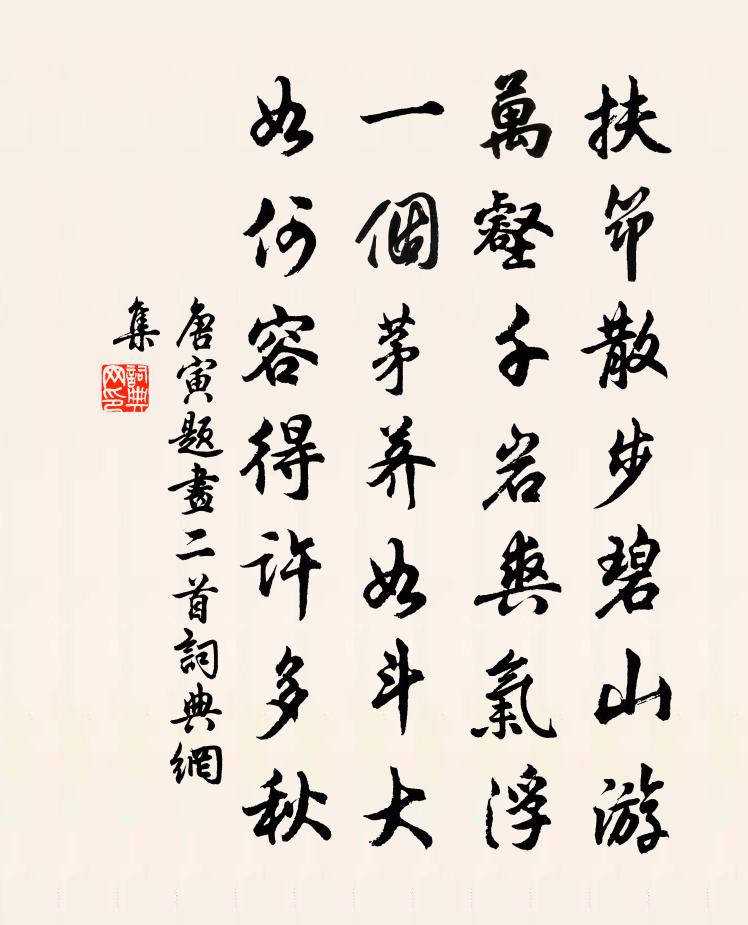 扶筇散步碧山游
萬壑千岩爽氣浮
一個茅养如斗大
如何容得许多秋
唐寅題畫二首詞典網
集
詞典网印